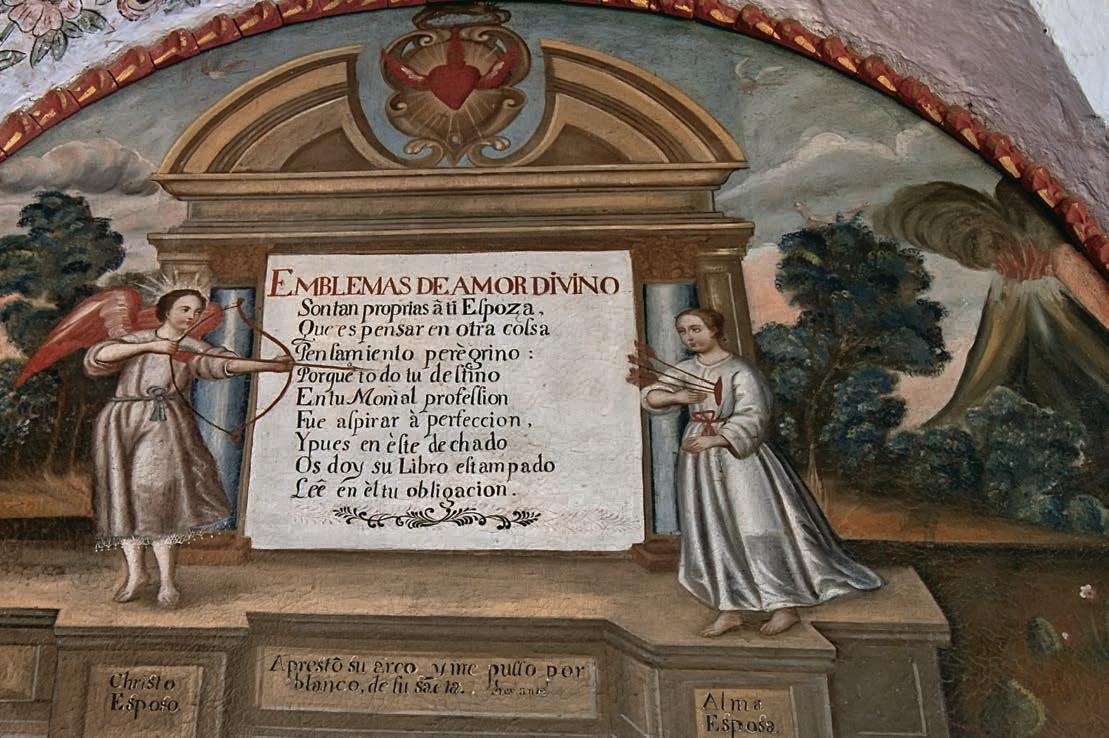 EMBLEMAS DE AMOR DiViNO
Son tan proprias â ti Eſpoza,
Que es pensar en otra coſsa
Penſamiento perègrino :
Porque todo tu deſtino
En tu Monial profeſſion
Fue aſpirar à perfeccion,
Y pues en èſte dechado
Os doy su Libro eſtampado
Leê en èl tu obligacion.
Apreſtô su arco, y me puſſo por
blanco, de ſu
Chriſto
Eſposo.
Alma
Eſpoſa